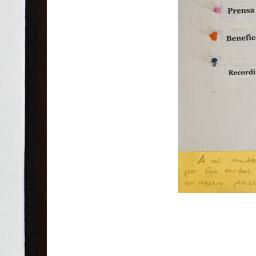 Prensa
Benefic
Recordi
A mi madre
por las tardes
en nuestro pueblo